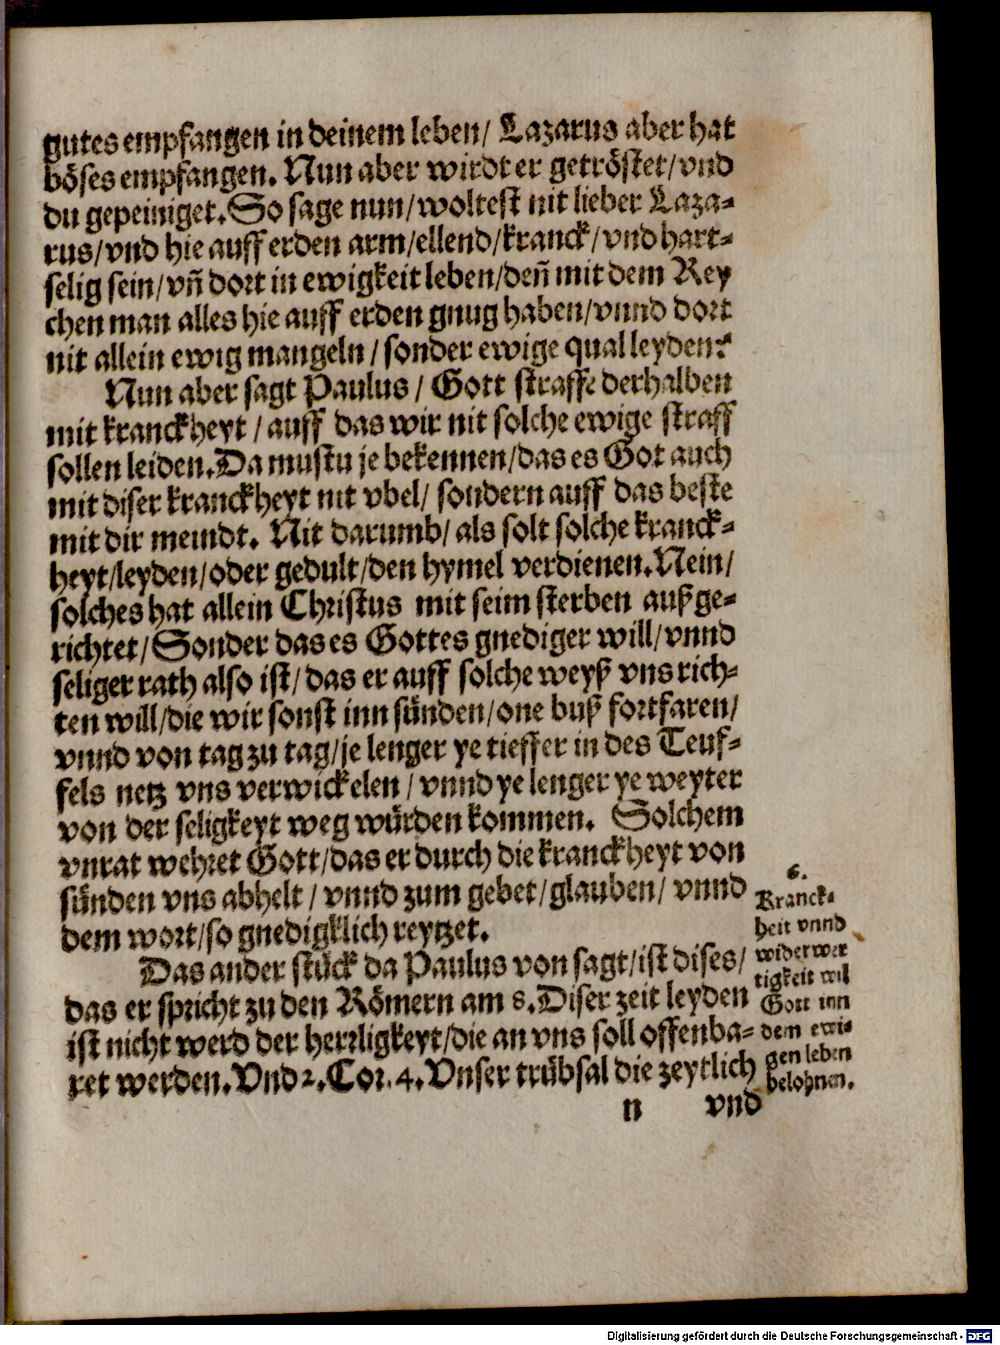 gutes empfangen in deinem leben/ Lazarus aber hat
böses empfangen. Nun aber wirdt er getröstet/vnd
du gepeiniget. So sage nun/woltest nit lieber Laza-
rus/vnd hie auff erden arm/ellend/kranck/vnd hart-
selig sein/vñ dort in ewigkeit leben/deñ mit dem Rey
chen man alles hie auff erden gnug haben/vnnd dort
nit allein ewig mangeln / sonder ewige qual leyden?
Nun aber sagt Paulus / Gott straffe derhalben
mit kranckheyt / auff das wir nit solche ewige straff
sollen leiden. Da mustu je bekennen/das es Got auch
mit diser kranckheyt nit vbel/ sondern auff das beste
mit dir meindt. Nit darumb/ als solt solche kranck-
heyt/leyden/oder gedult/den hymel verdienen. Nein/
solches hat allein Christus mit seim sterben außge-
richtet/ Sonder das es Gottes gnediger will/vnnd
seliger rath also ist/ das er auff solche weyß vns rich-
ten will/die wir sonst inn sünden/one buß fortfaren/
vnnd von tag zu tag/je lenger ye tieffer in des Teuf-
fels netz vns verwickelen / vnnd ye lenger ye weyter
von der seligkeyt weg würden kommen. Solchem
vnrat wehret Gott/das er durch die kranckheyt von
sünden vns abhelt / vnnd zum gebet/glauben/ vnnd
dem wort/so gnedigklich reytzet.
Das ander stück da Paulus von sagt/ist dises/
das er spricht zu den Römern am 8. Diser zeit leyden
ist nicht werd der herrligkeyt/die an vns soll offenba-
ret werden. Vnd 2. Cor. 4. Vnser trübsal die zeytlich
n vnd
6.
Kranck-
heit vnnd
widerwer
tigkeit wil
Gott inn
dem ewi-
gen leben
belohnen.
Digitalisierung gefördert durch die Deutsche Forschungsgemeinschaft - DFG